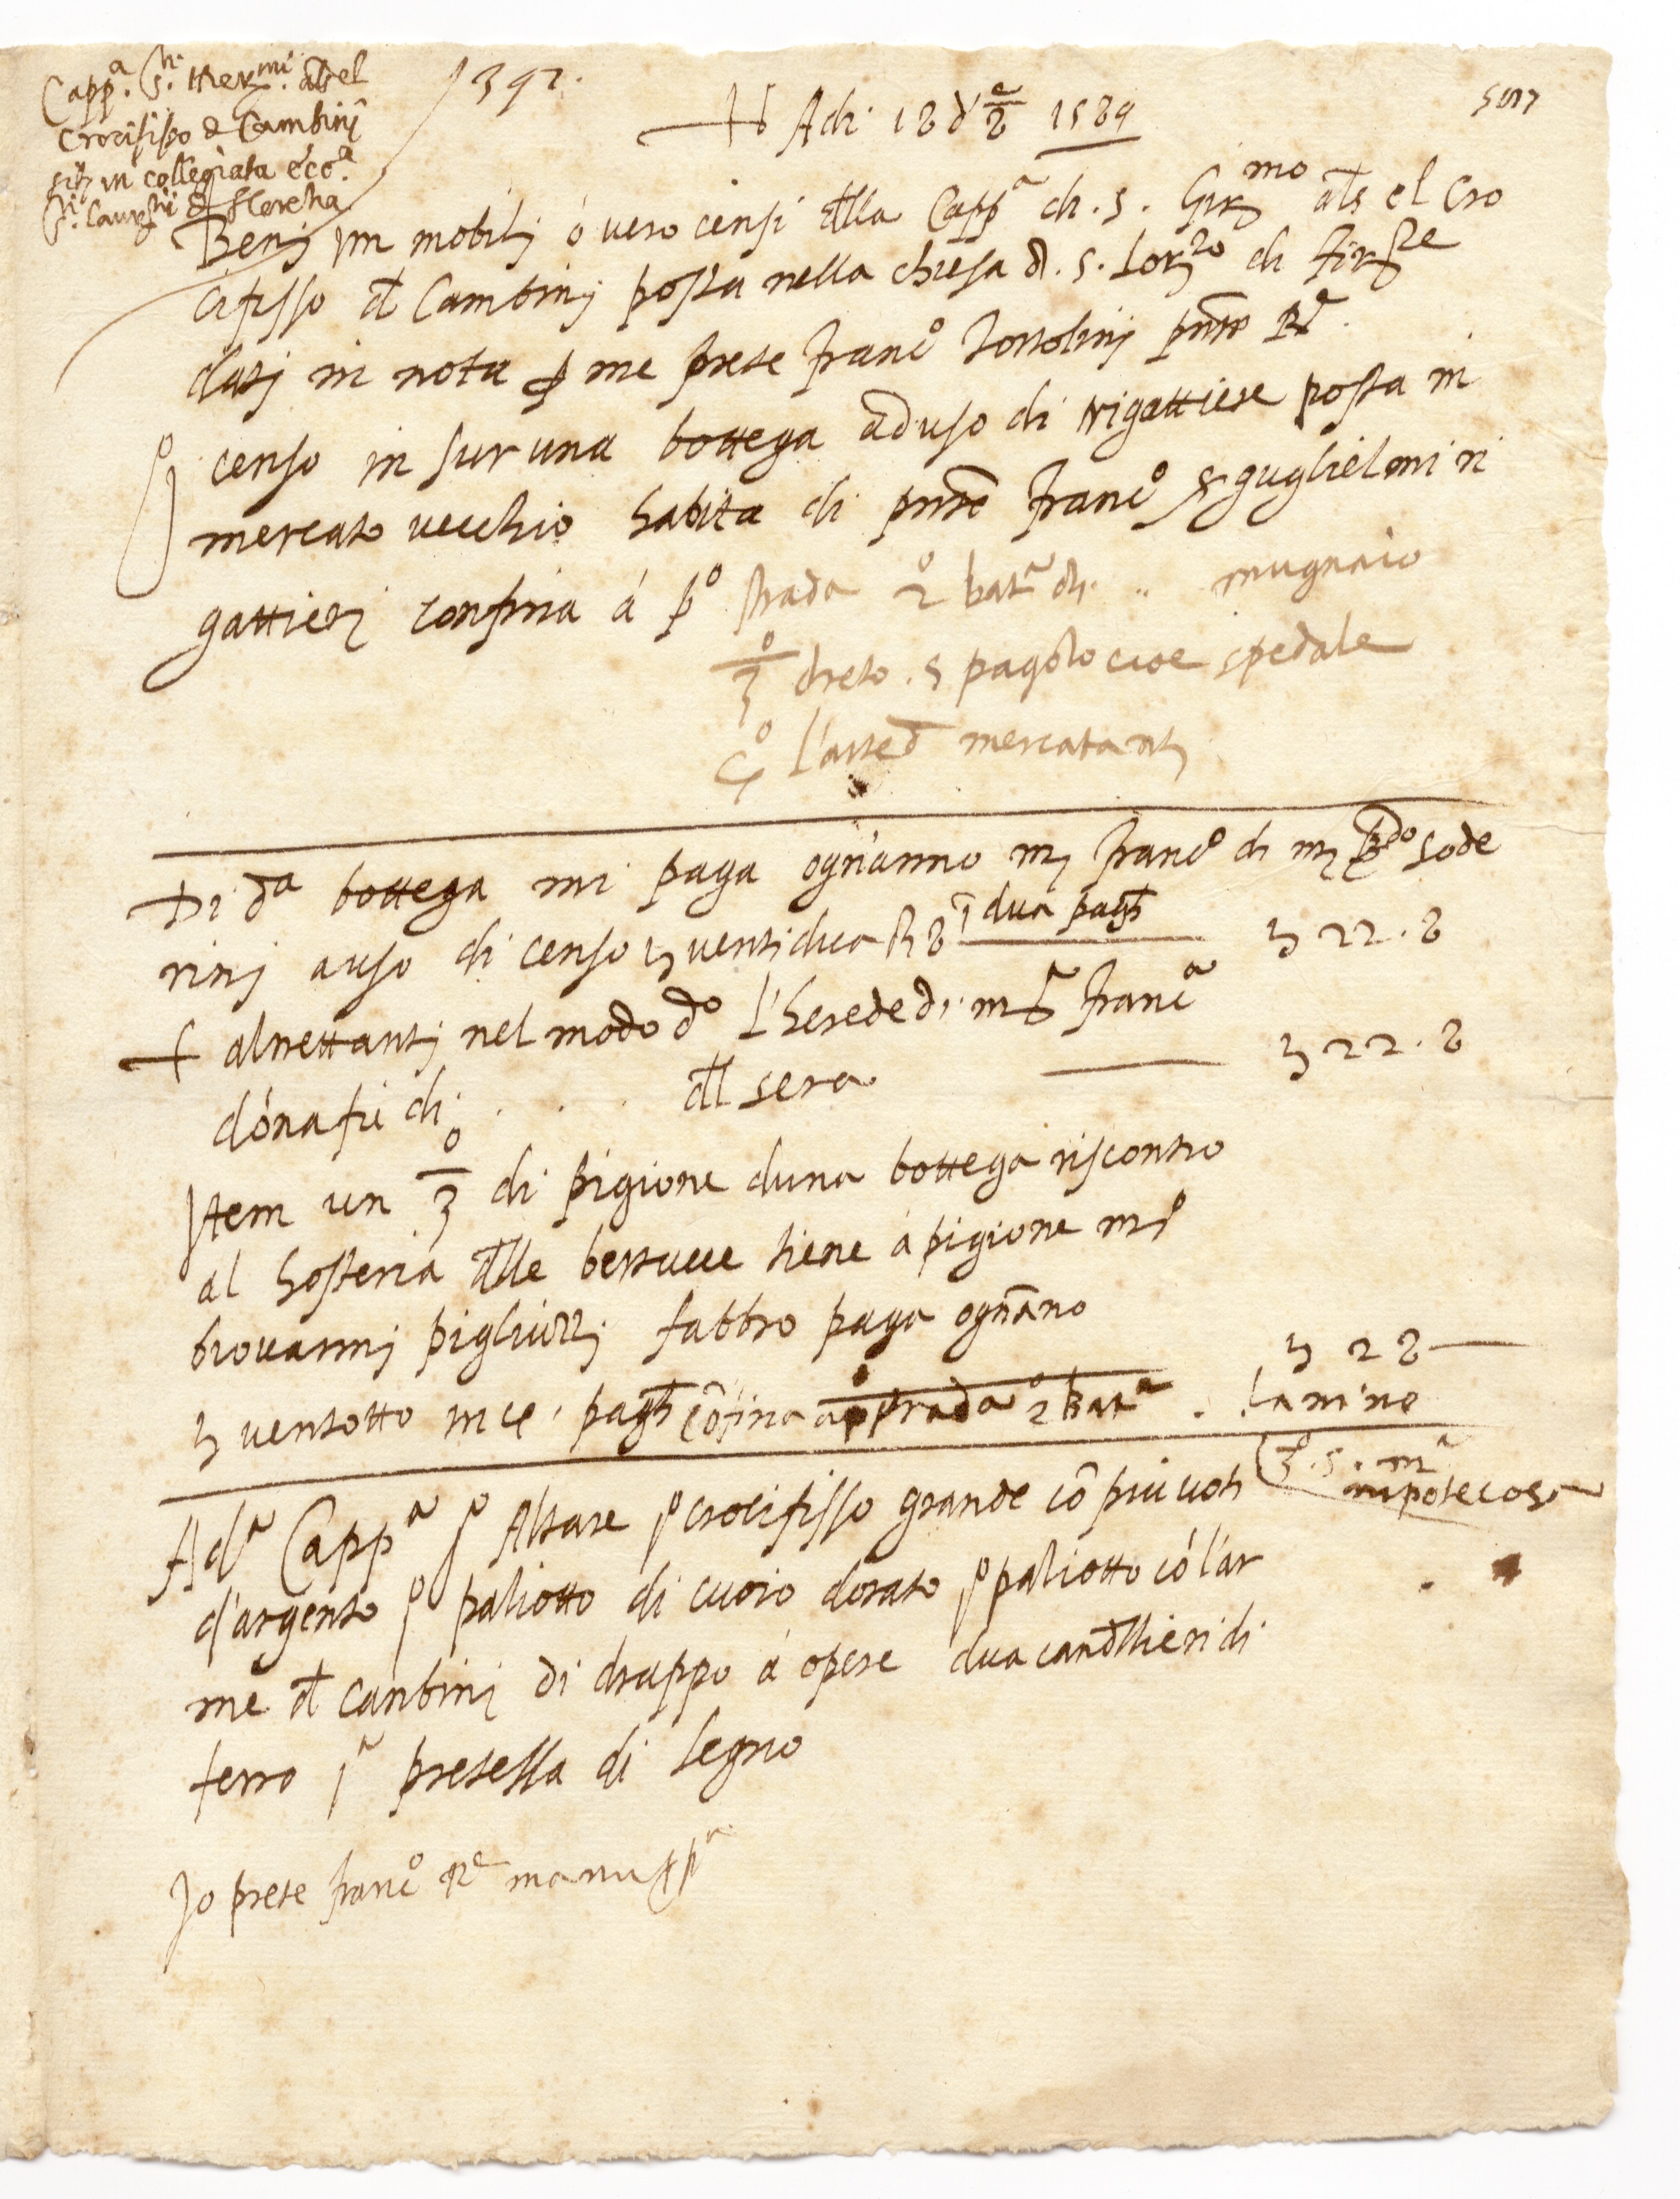 Capp.a S.ti Hier.mi als el
Crocifisso de Cambinj
in collegiata ecc.a
S.ti Laurentii de Florentia
392.
Adi 18 d' 1589
Benj im mobilj ó vero censi dlla Capp.a di. s. Gir.mo als el Cro
cifisso dl Cambinj posta nella chiesa d. s. Lor.zo di fir.ze
datj in nota p me prete franc.o Tortolinj pnte R.e
censo in sur una bottega ad uso di rigattiere posta in
mercato vecchio habita di pnte franc.o guglielmi ri
gattierj confina á p.o strada 2.o bat.a di .. mugnaio
3.o dreto. s pagolo cioe spedale
4.o l'arte d mercatantj
Di d.a bottega mi paga ogn'anno m franc.o di m sode
rinj a uso di censo ventidua 8 i dua pagh 22.8
+ altrettantj nel modo d.o l'herede di m.a franc.a
donati di . . . dl sera 22.8
Item un 3.o di pigione duna bottega riscontro
al hosteria dlle bertucce tiene á pigione m.o
Giovannj fabbro paga ognano
ventotto in pagh cofina a p.o strada 2.o bat.a . lanino 28
3.o s. m.a nipotecosa
A d.a Capp.a j.o Altare j.o crocifisso grande cō piu voti
d'argento j.o paliotto di cuoio dorato j.o paliotto có l'ar
me dl canbinj di drappo á opere dua candllieri di
ferro j.a predella di legno
Jo prete franc.o R.e manu pp.a